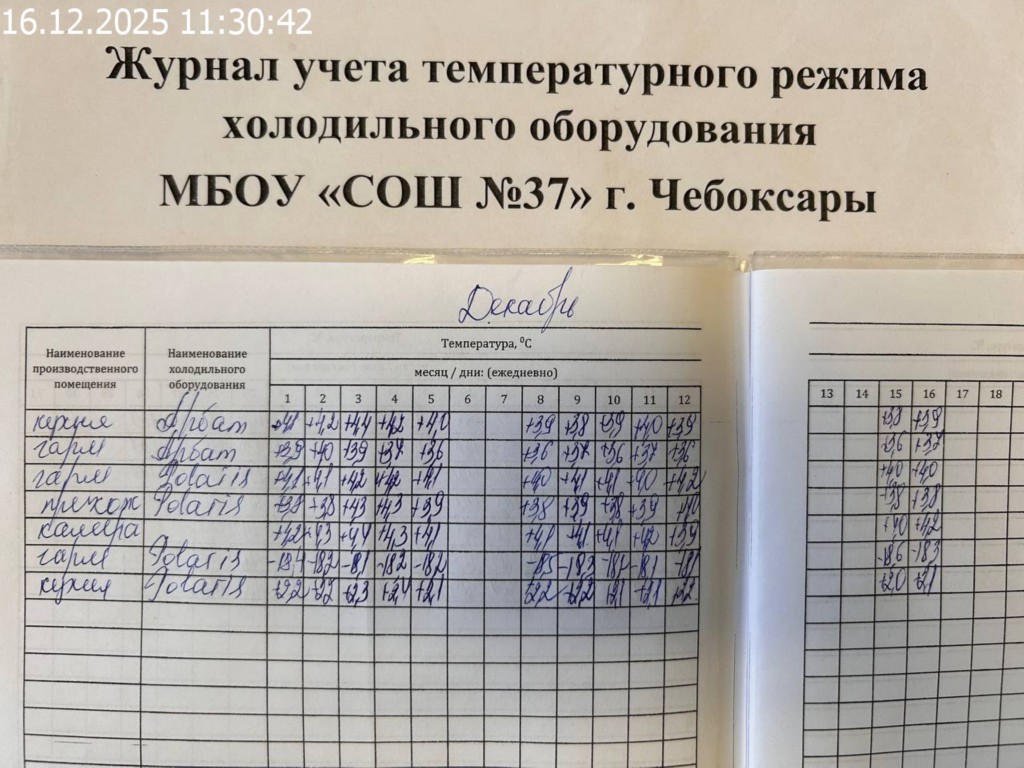 16.12.2025 11:30:42
Журнал учета температурного режима
холодильного оборудования
МБОУ «СОШ №37» г. Чебоксары
Декабрь
Наименование производственного помещения
Наименование холодильного оборудования
Температура, ⁰С
месяц / дни: (ежедневно)
1 2 3 4 5 6 7 8 9 10 11 12 13 14 15 16 17 18
кухня Арбат +4,2 +4,4 +4,2 +4,0 +3,9 +3,8 +3,9 +4,0 +3,9 +3,8 +3,9
Арбат +3,9 +3,7 +3,6 +3,6 +3,7 +3,6 +3,7 +3,6 +3,6 +3,7
Polaris +4,1 +4,2 +4,2 +4,1 +4,0 +4,1 +4,1 +4,0 +4,2 +4,0 +4,0
Polaris +3,8 +4,3 +4,3 +3,9 +3,8 +3,9 +3,8 +3,9 +3,8 +3,8
камера +4,2 +4,3 +4,4 +4,3 +4,1 +4,1 +4,1 +4,1 +4,2 +3,9 +4,0 +4,2
Polaris -18,2 -18,1 -18,2 -18,2 -18,3 -18,1 -18,1 -18,6 -18,3
кухня Polaris +2,2 +2,2 +2,3 +2,4 +2,1 +2,2 +2,2 +2,1 +2,1 +2,2 +2,0 +2,1